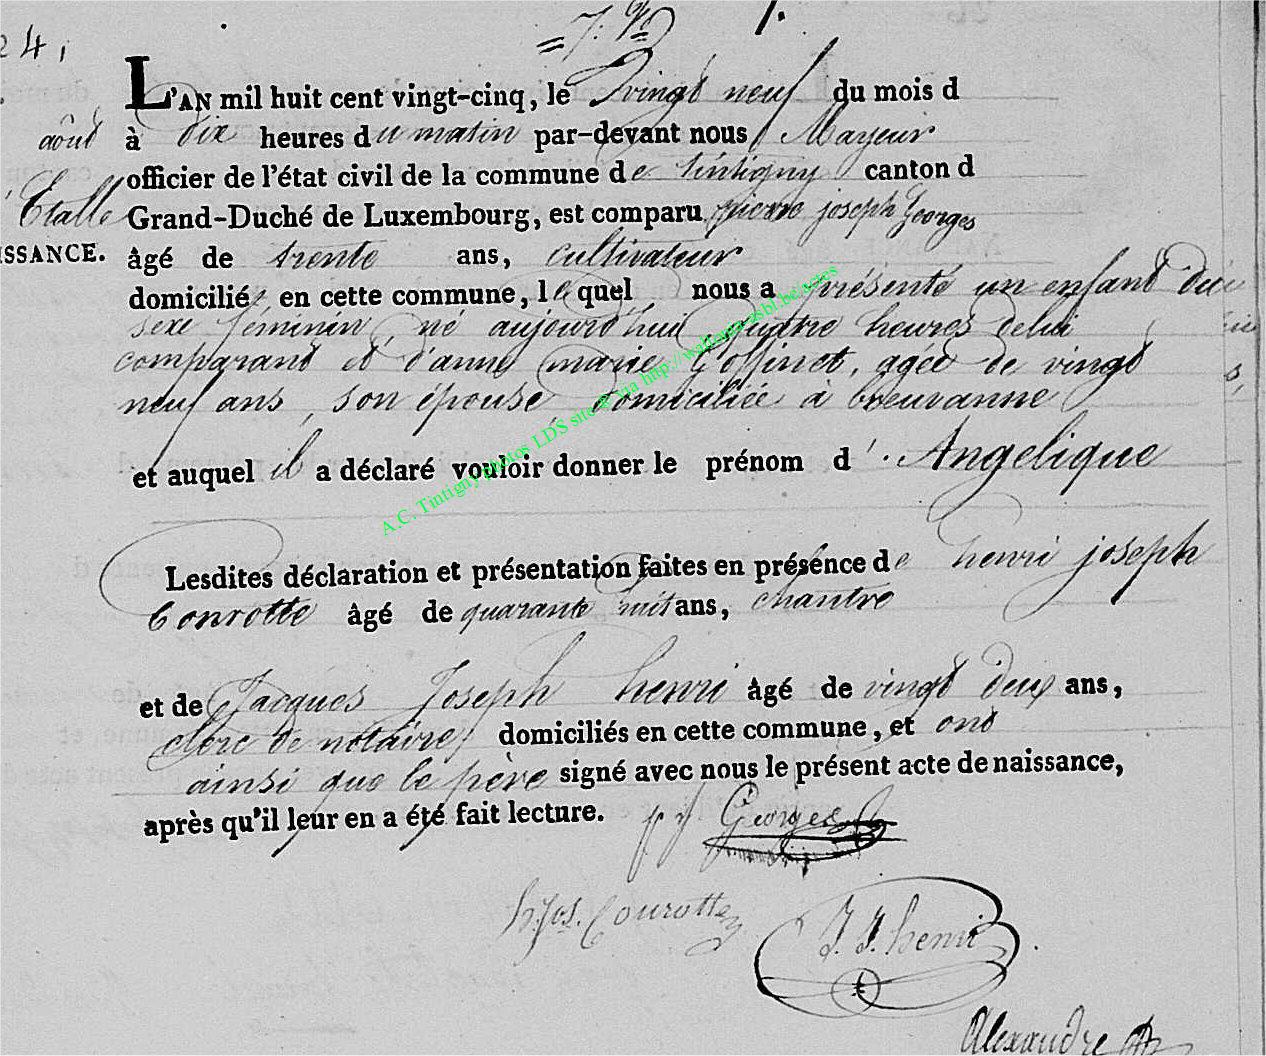 24,
L'AN mil huit cent vingt-cinq, le vingt neuf du mois d
aôut à dix heures du matin par-devant nous Mayeur
officier de l'état civil de la commune de tintigny canton d
Etalle Grand-Duché de Luxembourg, est comparu pierre joseph Georges
ISSANCE. âgé de trente ans, cultivateur
domicilié en cette commune, lequel nous a présenté un enfant du
sexe féminin, né aujourd'hui quatre heures delui
comparant et d'anne marie Goffinet, agée de vingt
neuf ans, son épouse, domiciliée à breuvanne
et auquel il a déclaré vouloir donner le prénom d'Angelique
Lesdites déclaration et présentation faites en présence de henri joseph
Conrotte âgé de quarante huit ans, chantre
et de Jacques Joseph henri âgé de vingt deux ans,
clerc de notaire, domiciliés en cette commune, et ont
ainsi que le père signé avec nous le présent acte de naissance,
après qu'il leur en a été fait lecture.
p j Georges
h. Jos. Conrotte
J. J. henri
Alexandre
A.C. Tintigny photos LDS site @ via http://wallonia-asbl.be/actes